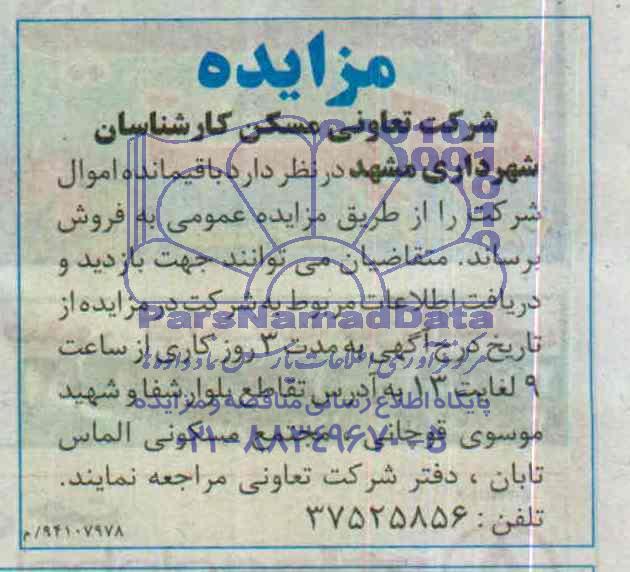 مزایده
شرکت تعاونی مسکن کارشناسان
شهرداری مشهد در نظر دارد باقیمانده اموال
شرکت را از طریق مزایده عمومی به فروش
برساند. متقاضیان می توانند جهت بازدید و
دریافت اطلاعات مربوط به شرکت در مزایده از
ParsNamadData
تاریخ درج آگهی به مدت ۳ روز کاری از ساعت
۹ لغایت ۱۳ به آدرس تقاطع بلوار شفا و شهید
پایگاه اطلاع رسانی مناقصه و مزایده
موسوی قوچانی ، مجتمع مسکونی الماس
۰۲۱-۸۸۳۴۹۶۷۰-۵
تابان ، دفتر شرکت تعاونی مراجعه نمایند.
تلفن : ۳۷۵۲۵۸۵۶
۹۴۱۰۷۹۷۸/م